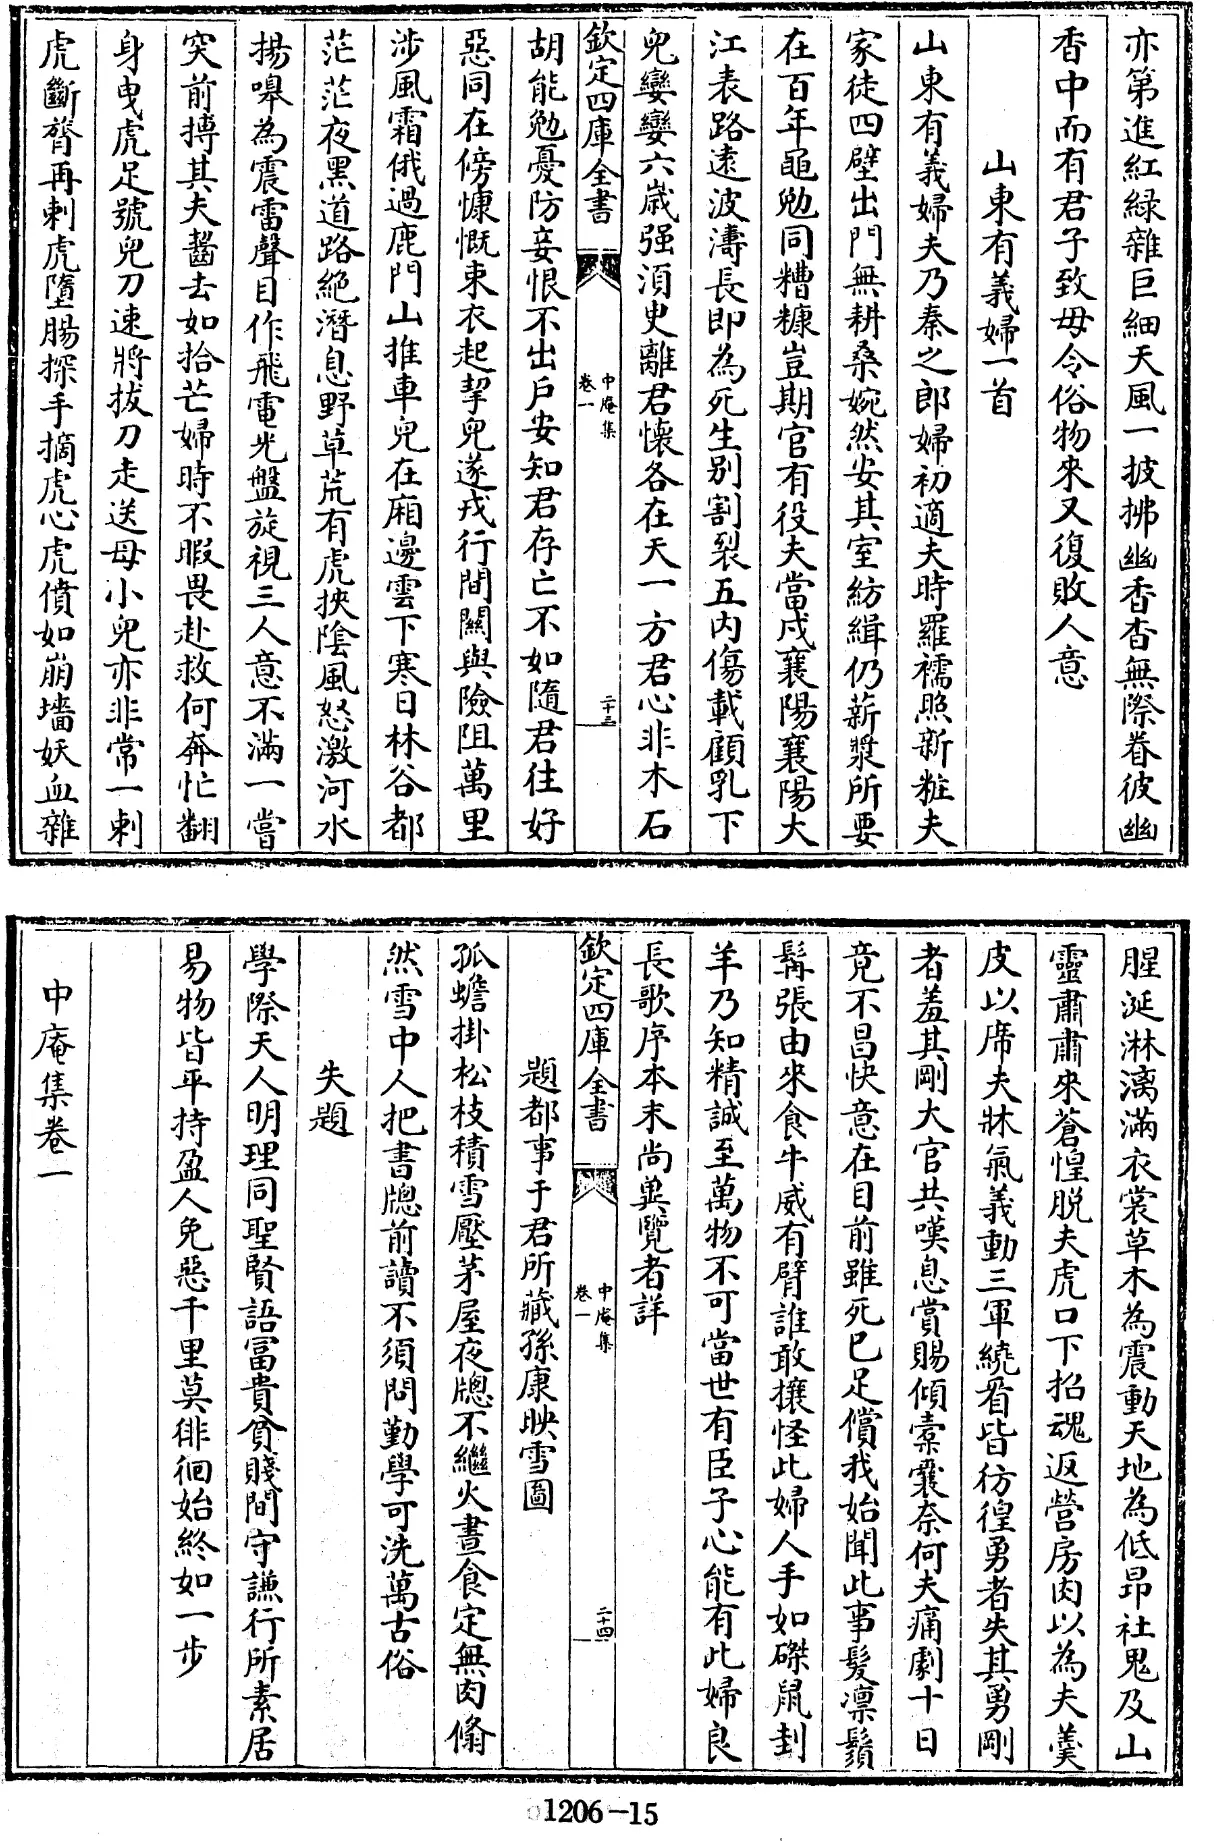 亦第進紅綠雜巨細天風一披拂幽香杳無際眷彼幽
香中而有君子致毋令俗物來又復敗人意
山東有義婦一首
山東有義婦夫乃秦之郎婦初適夫時羅襦照新粧夫
家徒四壁出門無耕桑婉然安其室紡緝仍薪漿所要
在百年黽勉同糟糠豈期官有役夫當戍襄陽襄陽大
江表路遠波濤長即為死生別割裂五內傷載顧乳下
兒孌孌六歲强須臾離君懷各在天一方君心非木石
欽定四庫全書
中庵集
卷一
二十三
胡能勉憂防妾恨不出戶安知君存亡不如隨君往好
惡同在傍慷慨束衣起挈兒遂戎行間關與險阻萬里
涉風霜俄過鹿門山推車兒在廂邊雲下寒日林谷都
茫茫夜黑道路絶潛息野草荒有虎挾陰風怒激河水
揚嘷為震雷聲目作飛電光盤旋視三人意不滿一嘗
突前搏其夫齧去如拾芒婦時不暇畏赴救何奔忙翻
身曳虎足號兒刀速將拔刀走送母小兒亦非常一刺
虎斷膂再刺虎墮腸探手摘虎心虎僨如崩墻妖血雜
腥涎淋漓滿衣裳草木為震動天地為低昂社鬼及山
靈肅肅來蒼惶脱夫虎口下招魂返營房肉以為夫羹
皮以席夫牀氣義動三軍繞看皆彷徨勇者失其勇剛
者羞其剛大官共嘆息賞賜傾橐囊奈何夫痛劇十日
竟不昌快意在目前雖死已足償我始聞此事髮凛鬚
髯張由來食牛威有臂誰敢攘怪此婦人手如磔鼠刲
羊乃知精誠至萬物不可當世有臣子心能有此婦良
長歌序本末尚兾覽者詳
欽定四庫全書
中庵集
卷一
二十四
題都事于君所藏孫康映雪圖
孤蟾掛松枝積雪壓茅屋夜牕不繼火晝食定無肉翛
然雪中人把書牕前讀不須問勤學可洗萬古俗
失題
學際天人明理同聖賢語富貴貧賤間守謙行所素居
易物皆平持盈人免惡千里莫徘徊始終如一步
中庵集卷一
1206-15